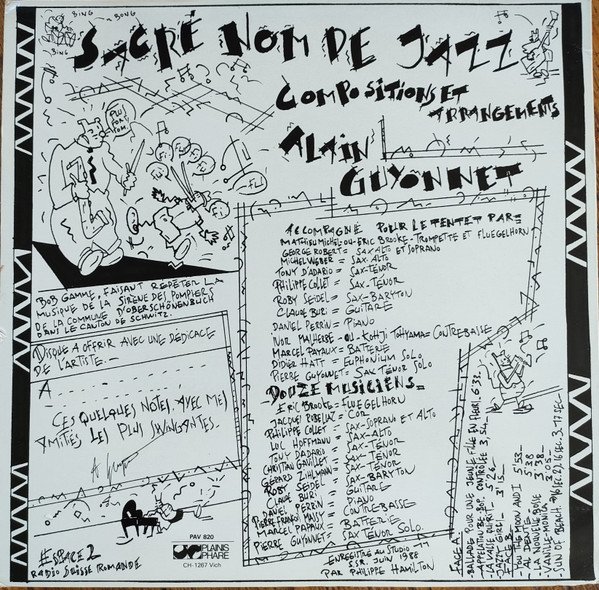 BING BONG
BING
BONG
SACRÉ NOM DE JAZZ
COMPOSITIONS ET
ARRANGEMENTS
ALAIN
GUYONNET
BOB GAMME FAISANT REPETER LA
MUSIQUE DE LA SIRENE DES POMPIERS
DE LA COMMUNE D'OBERSCHÖNENBUCH
DANS LE CANTON DE SCHWITZ.
DISQUE A OFFRIR AVEC UNE DÉDICACE
DE L'ARTISTE.
A
CES QUELQUES NOTES, AVEC MES
AMITIÉS LES PLUS SWINGANTES.
ACCOMPAGNÉ POUR LE TENTET PAR=
MATHIEU MICHEL-OU-ERIC BROOKE-TROMPETTE ET FLUEGELHORN
GEORGE ROBERT= SAX-ALTO ET SOPRANO
MICHEL WEBER= SAX-ALTO
TONY D'ADARIO= SAX-TÉNOR
PHILIPPE COLLET= SAX-TÉNOR
ROBY SEIDEL= SAX-BARYTON
CLAUDE BURI= GUITARE
DANIEL PERRIN= PIANO
IVOR MALHERBE-OU-KOHJI TOHYAMA=CONTREBASSE
MARCEL PAPAUX= BATTERIE
DIDIER HATT= EUPHONIUM SOLO
PIERRE GUYONNET= SAX TÉNOR SOLO
DOUZE MUSICIENS=
ERIC BROOKE=FLUEGELHORN
JACQUES ROBELLAZ= COR
PHILIPPE COLLET= SAX-SOPRANO ET ALTO
LOIC HOFFMANN= SAX-ALTO
TONY DADARIO= SAX-TÉNOR
CHRISTIAN GAVILLET= SAX-TÉNOR
GÉRARD ZIHLMANN= SAX-TÉNOR
ROBY SEIDEL= SAX-BARYTON
CLAUDE BURI= GUITARE
DANIEL PERRIN= PIANO
PIERRE-FRANÇOIS MASSY= CONTREBASSE
MARCEL PAPAUX= BATTERIE
PIERRE GUYONNET= SAX TÉNOR SOLO.
ENREGISTRÉ AU STUDIO
RSR. JUIN 1988
PAR PHILIPPE HAMILTON
FACE A
BALLADE POUR UNE JEUNE FILLE EN FLEURS, 6'32.
APPELLATION BE-BOP CONTRÔLÉE 3,54.
JAZZY GIRL 3'15
FACE B
YOU THE MOON AND I 5'53
AL DENTE 3'38
LA NOUVELLE BISE 3'38
VANILLE-MOKA
SUN OF BEACH
ESPACE 2
RADIO SUISSE ROMANDE
PAV 820
PLAINIS
PHARE
CH-1267 Vich